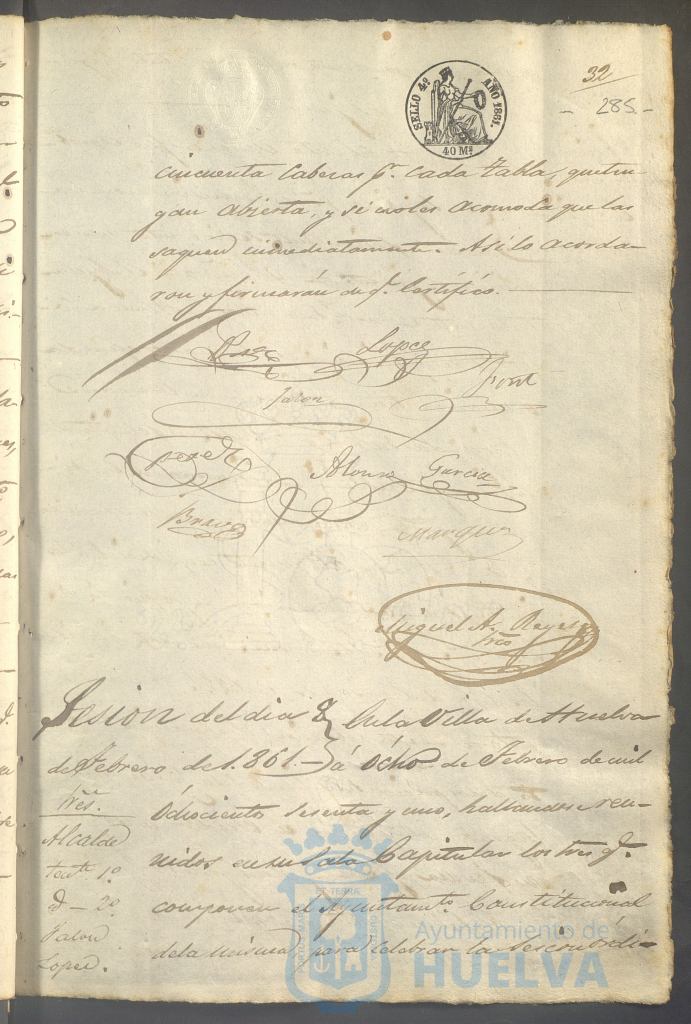 SELLO 4º AÑO 1861.
40 Ms
32
- 285 -
cincuenta cabezas pr. cada tabla, que ten
gan abierta, y si no les acomoda que las
saquen inmediatamente. Asi lo acorda-
ron y firmarán de q. Certifico.
Lopez
Font
Jalon
Alonso Garcia
Bravo
Marquez
Miguel A. Reyes
Srio
Sesion del dia 8
de Febrero de 1.861.-
Sres.
Alcalde
tente. 1º
d - 2º
Jalon
Lopez.
En la Villa de Huelva
á Ocho de Febrero de mil
Ochocientos sesenta y uno, hallandose reu-
nidos en su Sala Capitular los Sres. q.
componen el Ayuntamto. Constitucional
de la misma, para celebrar la Sesion ordi-
Ayuntamiento de
HUELVA